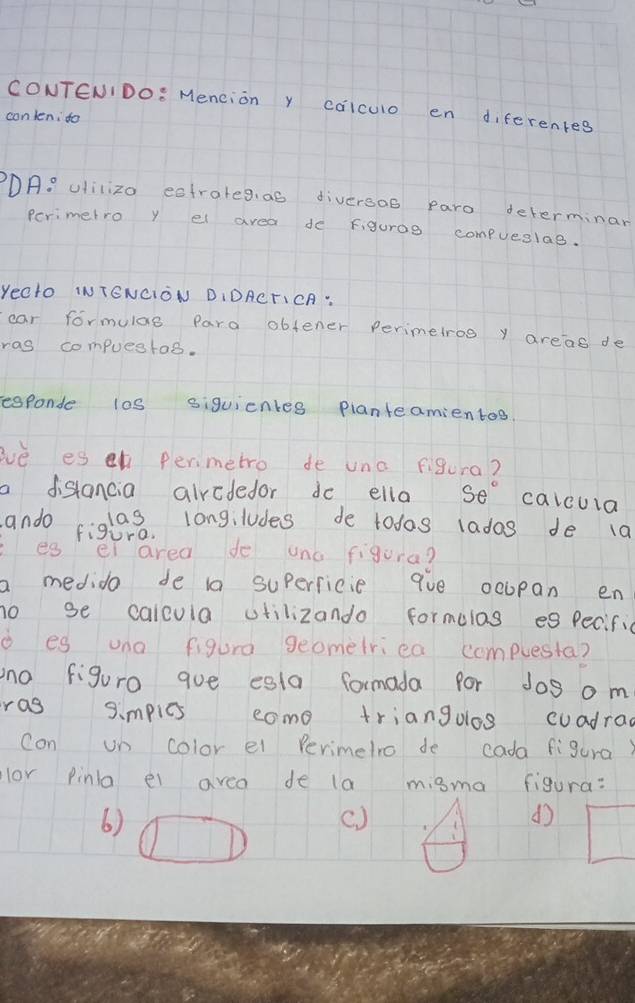 CONTENIDO: Mención y cálculo en diferentes
contenido
PDA: Utilizo estrategias diversas para determinar
perimetro y el area de figuras compuestas.
yecto INTENCIÓN DIDACTICA:
car fórmulas para obtener perimetros y areas de
ras compuestas.
esponde los siguientes planteamientos.
Qué es el perimetro de una figura?
a distancia alrededor de ella se calcula
ando las longitudes de todas lados de la
figura.
es el area de una figura?
a medida de la superficie que ocupan en
no se calcula utilizando formulas especific
é es una figura geométrica compuesta?
una figura que esta formada por dos o m
ras simples como triangulos cuadrad
Con un color el perimetro de cada figura y
lor pinta el area de la misma figura:
b) c) d)